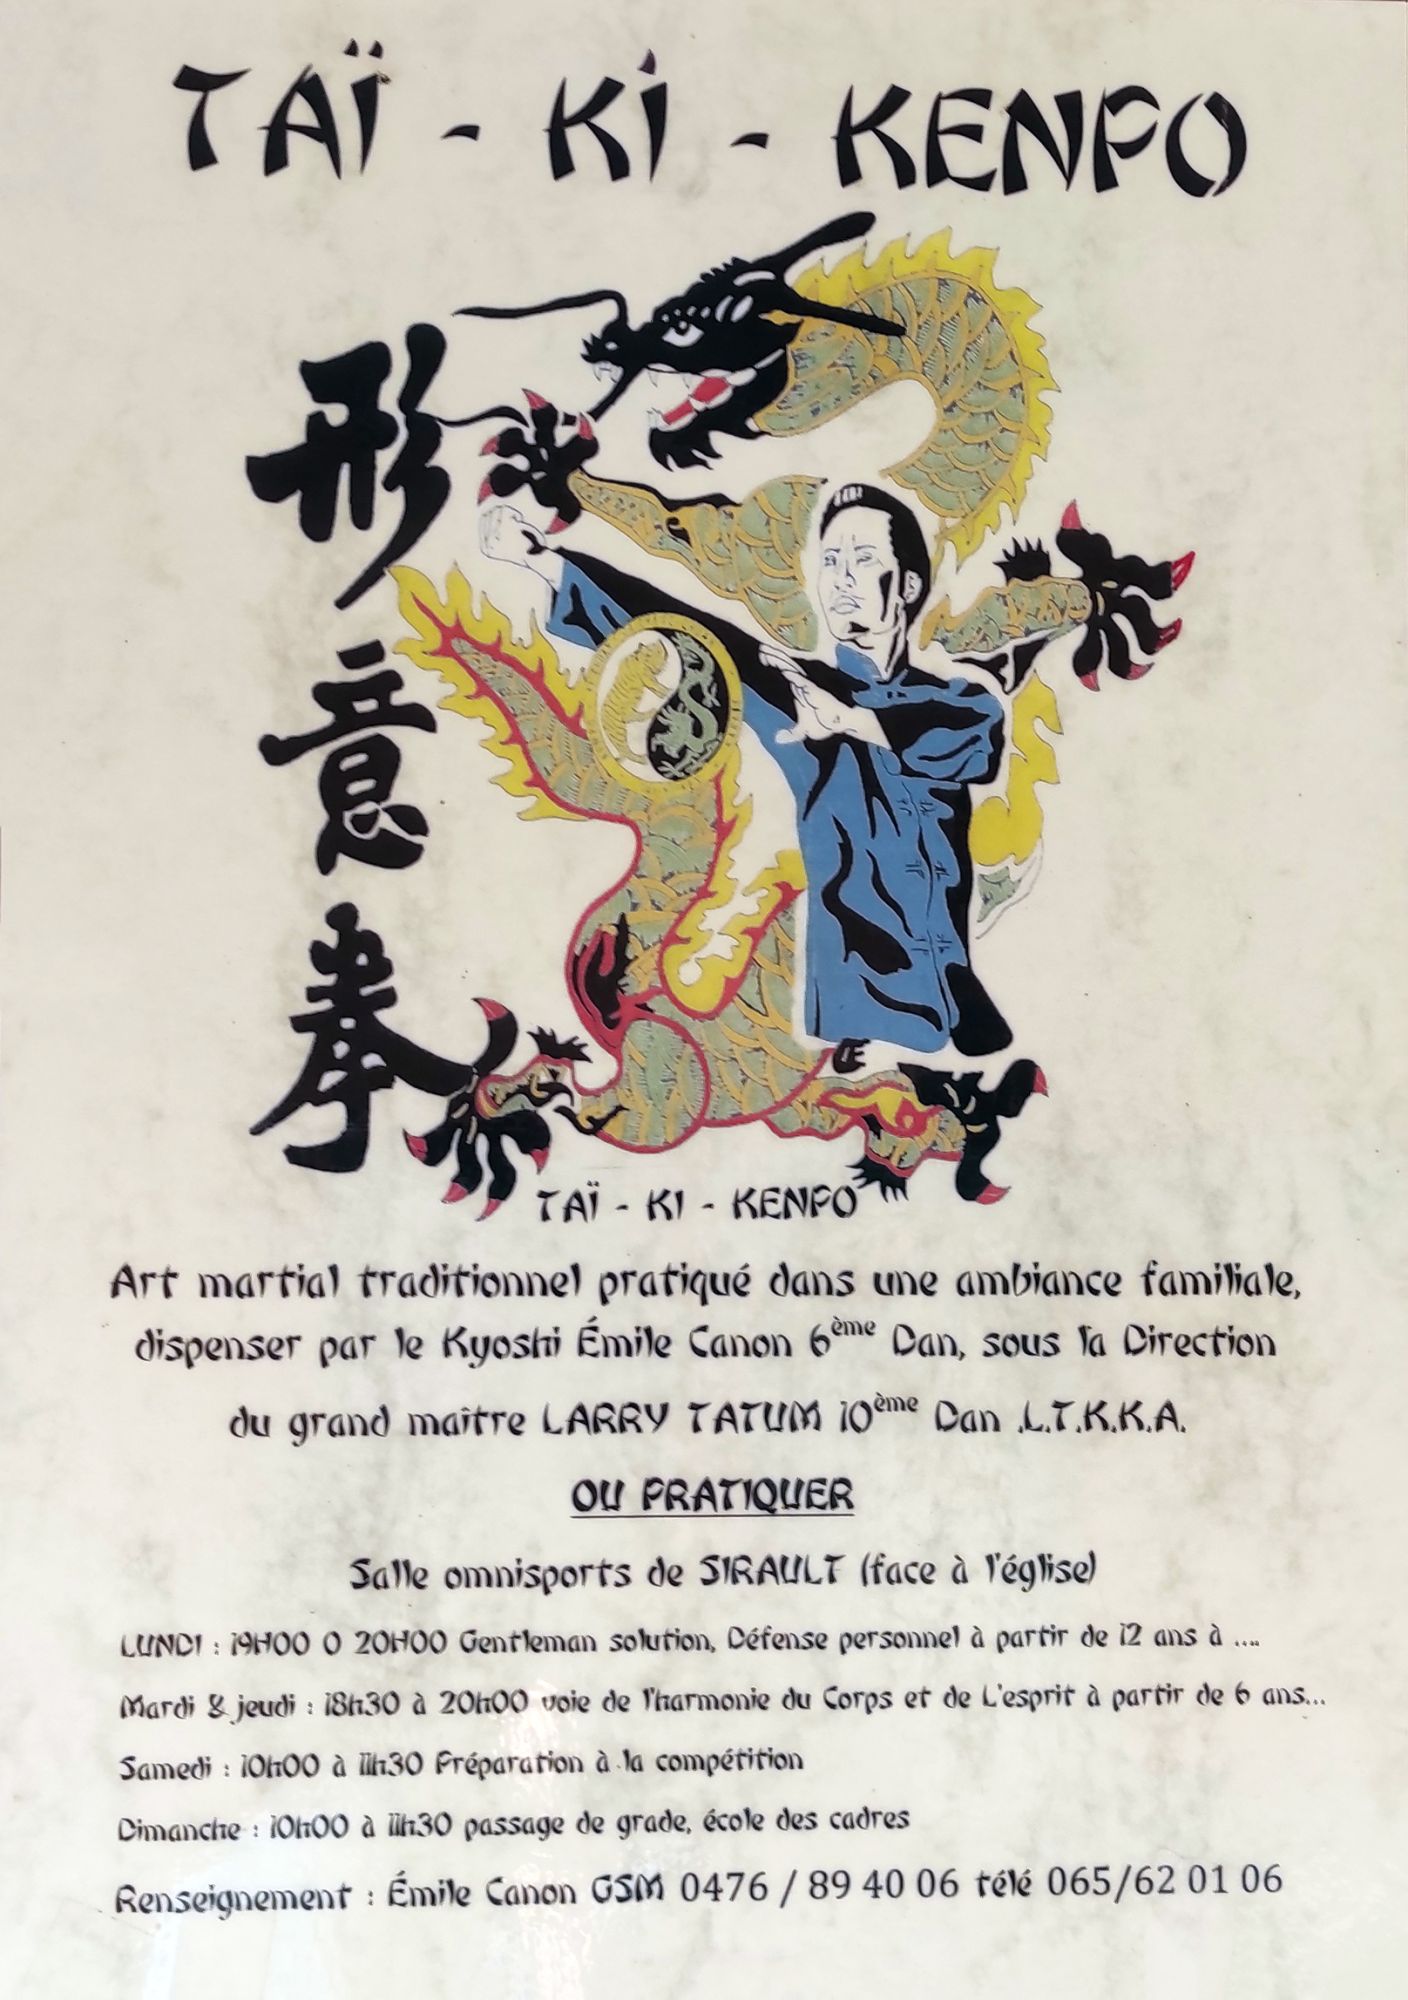 TAÏ - Ki - KENPO
形
意
拳
TAÏ - KI - KENPO
Art martial traditionnel pratiqué dans une ambiance familiale,
dispenser par le Kyoshi Émile Canon 6ème Dan, sous la Direction
du grand maître LARRY TATUM 10ème Dan .L.T.K.K.A.
OU PRATIQUER
Salle omnisports de SIRAULT (face à l'église)
LUNDI : 19H00 O 20H00 Gentleman solution, Défense personnel à partir de 12 ans à ....
Mardi & jeudi : 18h30 à 20h00 voie de l'harmonie du Corps et de L'esprit à partir de 6 ans...
Samedi : 10h00 à 11h30 Préparation à la compétition
Dimanche : 10h00 à 11h30 passage de grade, école des cadres
Renseignement : Émile Canon GSM 0476 / 89 40 06 télé 065/62 01 06